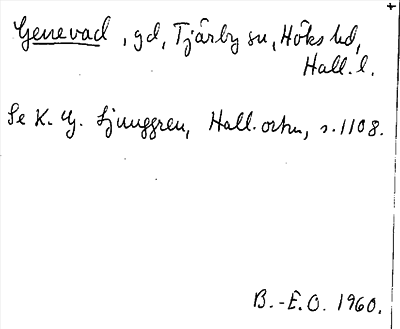 Genevad, gd, Tjärby sn, Höks hd,
Hall. l.
Se K. G. Ljunggren, Hall. ortn, s. 1108.
B.-E.O. 1960.